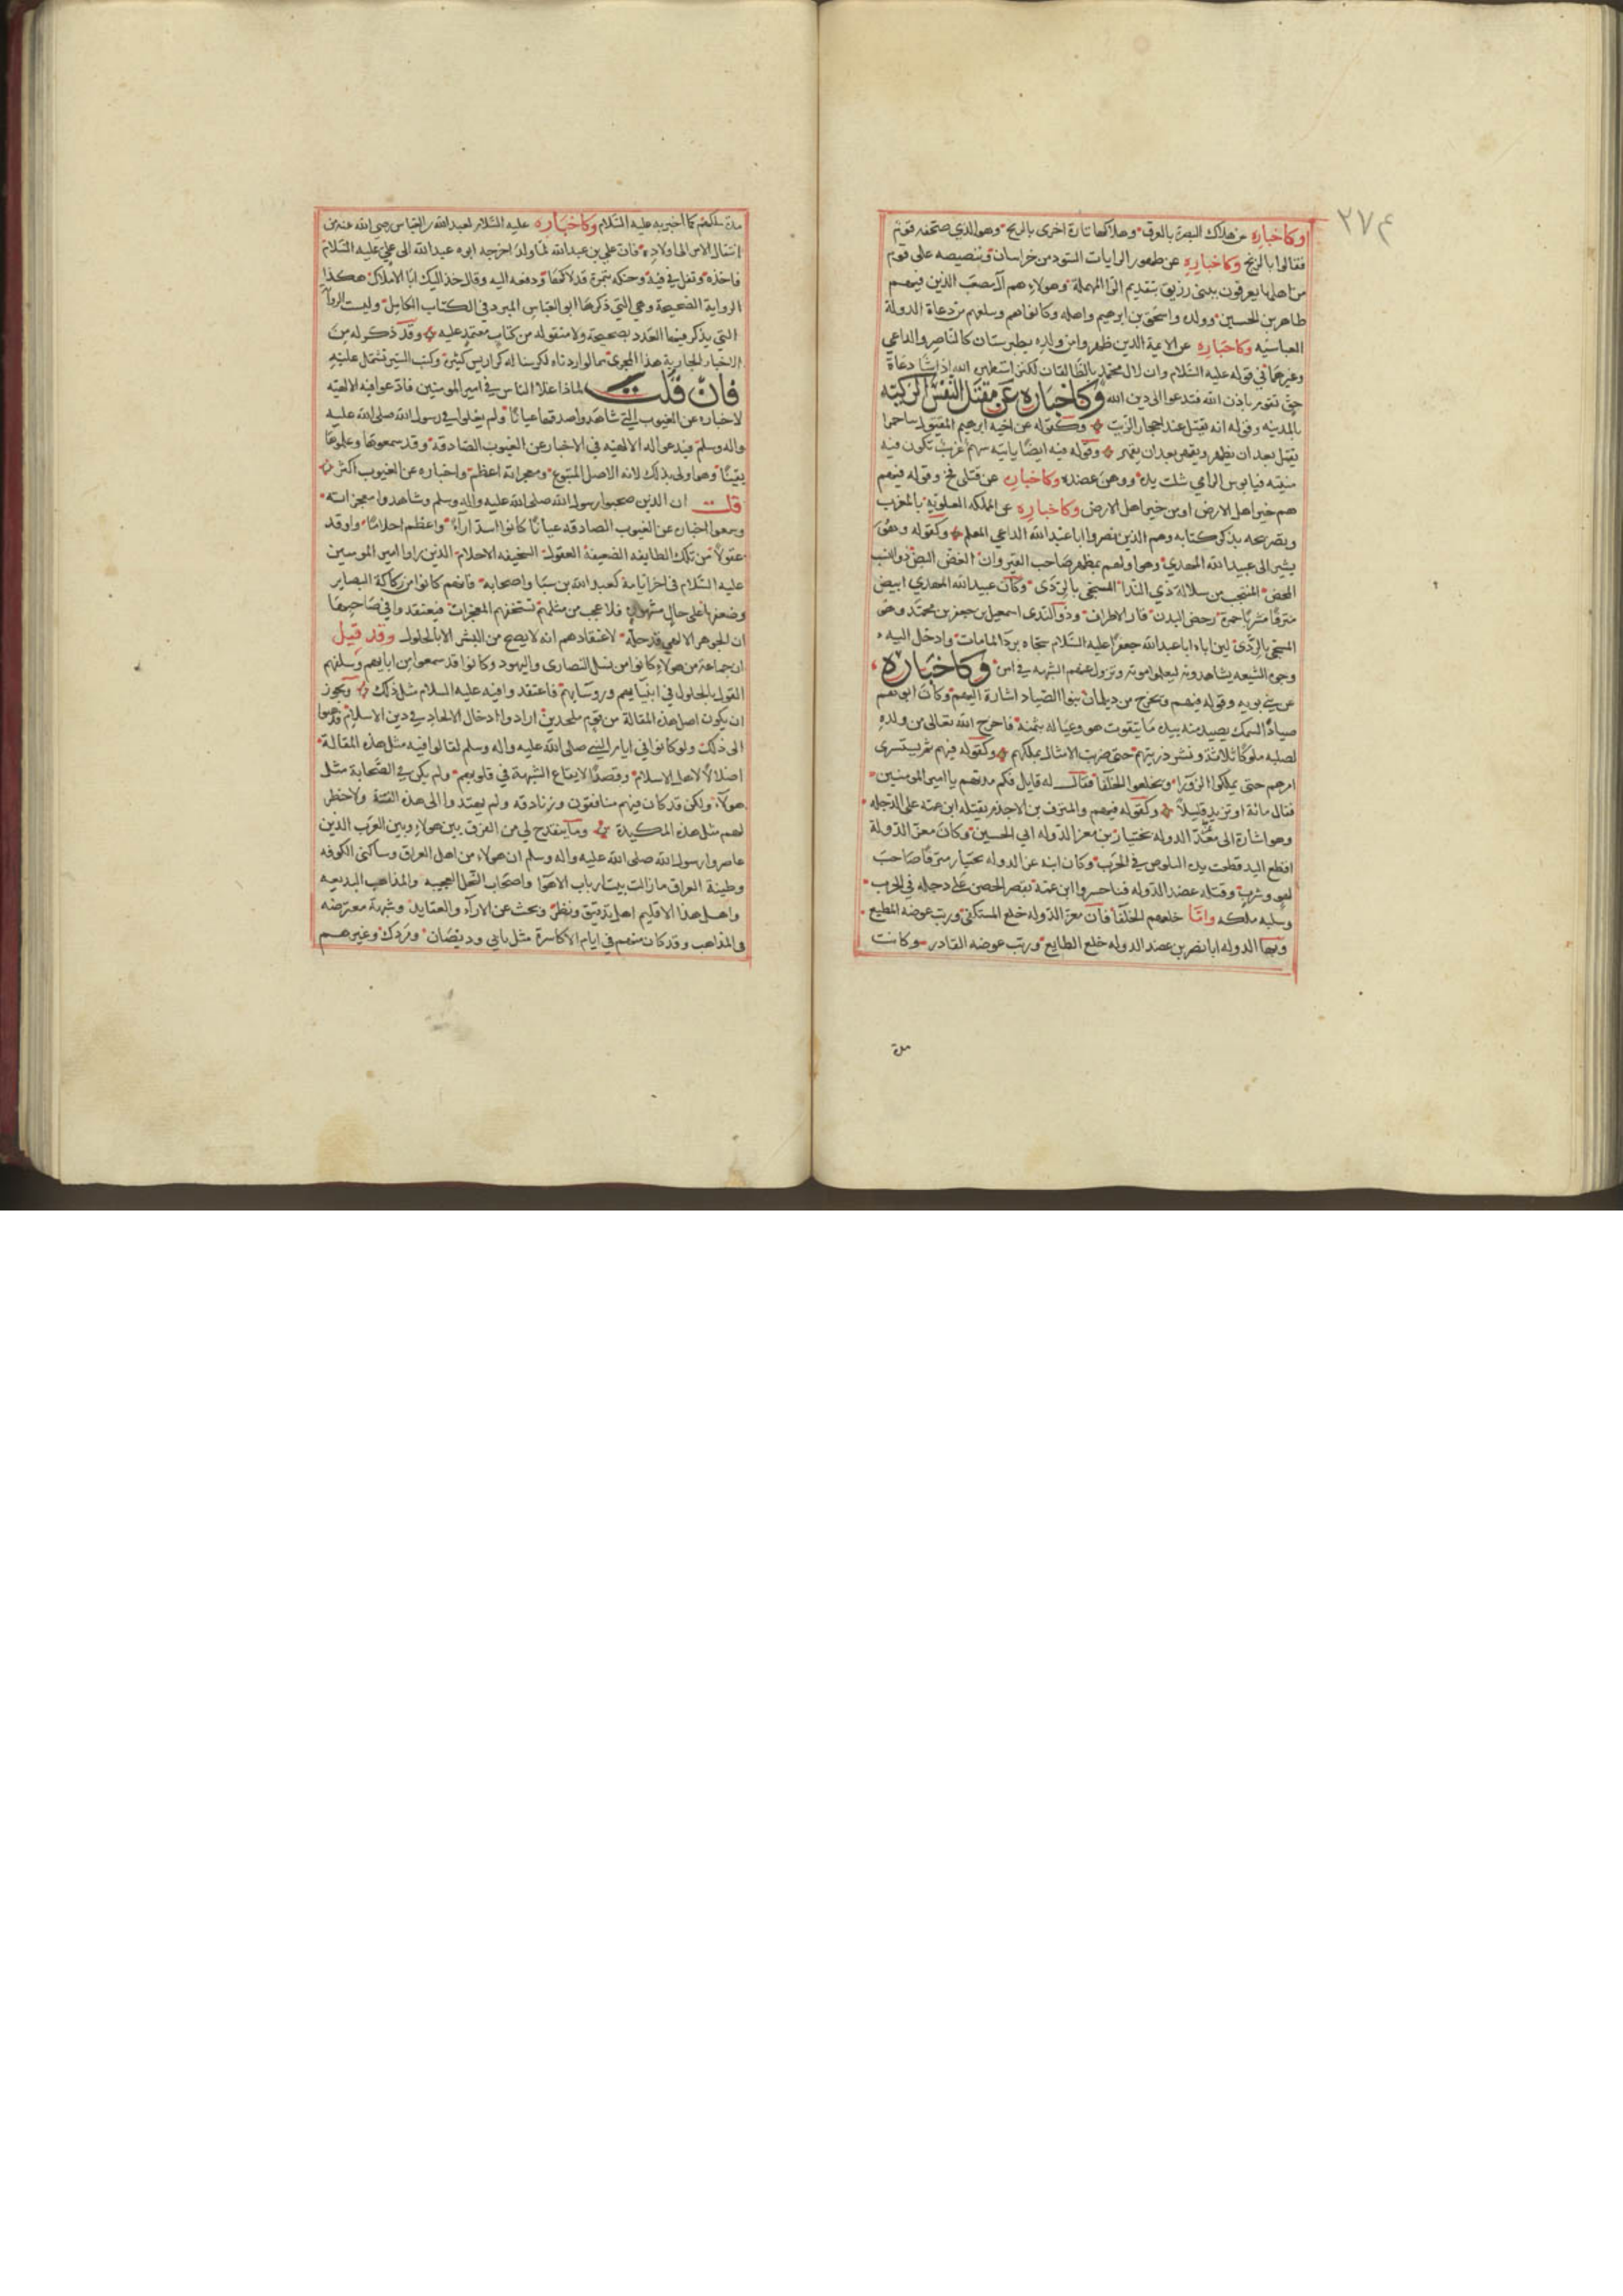 ٢٧٤
اوكاخباره عن هلاك البصرة بالغرق وهلاكها تارة اخرى بالريح وهو الذي صحفه قوم
فقالوا بالزنج وكاخباره عن ظهور الرايات السود من خراسان وتنصيصه على قوم
من اهلها يعرفون ببنى رزيق بتقديم الرا المهملة وهولاء هم آل مصعب الذين فيهم
طاهر بن الحسين وولده واسحق بن ابرهيم واصله وكانوا هم وسلفهم من دعاة الدولة
العباسيه وكاخباره عن الايمة الدين ظهروا من ولده بطبرستان كالناصر والداعي
وغيرهما في قوله عليه السّلام وان لال محمد بالطالقان لكنز استظهره الله اذا شا دعاة
حق تقوم باذن الله فتدعوا الى دين الله وكاخباره عن مقتل النفس الزكيّه
بالمدينه وقوله انه يقتل عند احجار الزيت وكقوله عن اخيه ابرهيم المقتول بباخمرا
يقتل بعد ان يظهر ويقهر بعد ان يقهر وقوله فيه ايضا ياتيه سهم غرب تكون فيه
منيته فيا بوس الرامي شلت يده ووهن عضده وكاخباره عن قتلى فخ وقوله فيهم
هم خير اهل الارض او من خير اهل الارض وكاخباره عن المملكه العلويّه بالمغرب
وبصريحه بذكر كتامه وهم الذين نصروا ابا عبد الله الداعي المعلم وكقوله وهو
يشير الى عبيد الله المهدي وهو اولهم ثم يظهر صاحب القيروان الغض البض ذو النسب
المحض المنتجب من سلالة ذي البدا المسجى بالردى وكان عبيد الله المهدي ابيض
مترفا مشربا حمرة رخص البدن قار الاطراف وذو البدى اسمعيل بن جعفر بن محمد وهو
المسجى بالردى لان اباه ابا عبد الله جعفرا عليه السّلام سجاه بردا لما مات وادخل اليه
وجوه الشيعه يشاهدونه ليعلموا موته وتزول عنهم الشبهه في امره وكاخباره
عن بني بويه وقوله فيهم ويخرج من ديلمان بنوا الصياد اشارة اليهم وكان ابوهم
صياد السمك يصيد منه بيده ما يتقوت هو وعياله بثمنه فاخرج الله تعالى من ولده
لصلبه ملوكا ثلاثة ونشر ذريتهم حتى ضربت الامثال بملكهم وكقوله فيهم ثم يستسرى
امرهم حتى يملكوا الزورا ويخلعوا الخلفا فقال له قايل فكم مدتهم يا امير المومنين
فقال مائة او تزيد قليلا وكقوله فيهم والمترف بن الاجذم يقتله ابن عمه على الدجله
وهو اشارة الى عز الدوله بختيار بن معز الدوله ابي الحسين وكان معز الدولة
اقطع اليد قطعت يده النكوص في الحرب وكان ابنه عز الدوله بختيار مترفا صاحب
لهو وشرب وقتله عضد الدوله فناخسروا ابن عمه بقصر الجص على دجله في الحرب
وسلبه ملكه وامّا خلعهم الخلفا فان معز الدوله خلع المستكفي ورتب عوضه المطيع
وبها الدوله ابا نصر بن عضد الدوله خلع الطايع ورتب عوضه القادر وكانت
مدة
مدة ملكهم كما اخبر به عليه السّلام وكاخباره عليه السّلام لعبد الله بن العباس رضى الله عنه عن
انتقال الامر الى اولاده فان علي بن عبد الله لما ولد اخرجه ابوه عبد الله الى علي عليه السّلام
فاخذه وتفل في فيه وحنكه بتمرة قد لاكها ودفعه اليه وقال خذ اليك ابا الاملاك هكذا
الرواية الصحيحة وهي التي ذكرها ابو العباس المبرد في الكتاب الكامل وليست الرواية
التي يذكر فيها العدد بصحيحة ولا منقوله من كتاب معتمد عليه وقد ذكر له من
الاخبار الجارية هذا المجرى مما لو اردناه لكرسنا له كراريس كثيرة وكتب السير تشتمل عليه
فان قلت لماذا غلا الناس في امير المومنين فادعوا فيه الالهيّه
لاخباره عن الغيوب التي شاهدوا صدقها عيانا ولم يغلوا في رسول الله صلى الله عليه
واله وسلم فيدعوا له الالهيّه في الاخبار عن الغيوب الصادقه وقد سمعوها وعلموها
يقينا وهو اولى بذلك لانه الاصل المتبوع ومعجزاته اعظم واخباره عن الغيوب اكثر
قلت ان الذين صحبوا رسول الله صلى الله عليه واله وسلم وشاهدوا معجزاته
وسمعوا اخباره عن الغيوب الصادقه عيانا كانوا اسد اراء واعظم احلاما واوقد
عقولا من تلك الطايفه الضعيفة العقول السخيفه الاحلام الذين راوا امير المومنين
عليه السّلام في اخر ايامه كعبد الله بن سبا واصحابه فانهم كانوا من ركاكة البصاير
وضعفها على حال مشهور فلا عجب من مثلهم تستخفهم المعجزات فيعتقدوا في صاحبها
ان الجوهر الالهي قد حله لاعتقادهم انه لا يصح من البشر الا بالحلول وقد قيل
ان جماعة من هولاء كانوا من نسل النصارى واليهود وكانوا قد سمعوا من ابايهم وسلفهم
القول بالحلول في انبيايهم وروسايهم فاعتقدوا فيه عليه السلام مثل ذلك ويجوز
ان يكون اصل هذه المقالة من قوم ملحدين ارادوا ادخال الالحاد في دين الاسلام فذهبوا
الى ذلك ولو كانوا في ايام النبي صلى الله عليه واله وسلم لقالوا فيه مثل هذه المقالة
اضلالا لاهل الاسلام وقصدا لايقاع الشبهة في قلوبهم ولم يكن في الصحابة مثل
هولاء ولكن قد كان فيهم منافقون وزنادقه ولم يهتدوا الى هذه الفتنة ولا خطر
لهم مثل هذه المكيدة وما ينقدح لي من الفرق بين هولاء وبين العرب الذين
عاصروا رسول الله صلى الله عليه واله وسلم ان هولاء من اهل العراق وساكني الكوفه
وطينة العراق ما زالت تنبت ارباب الاهوا واصحاب النحل العجيبه والمذاهب البديعه
واهل هذا الاقليم اهل تدقيق ونظر وبحث عن الارآء والعقايد وشبهة معترضه
في المذاهب وقد كان منهم في ايام الاكاسرة مثل ماني وديصان ومزدك وغيرهم